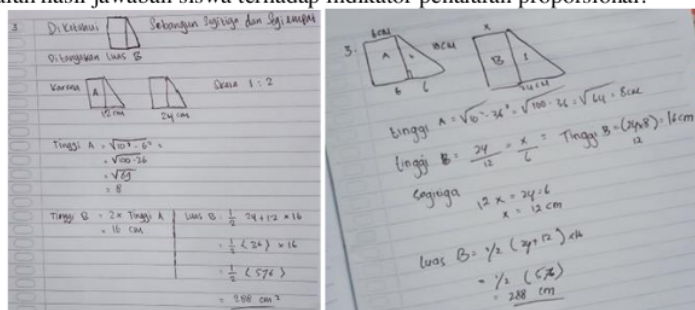 hasil jawaban siswa terhadap indikator penalaran proporsional.
3 Diketahui Sebangun Segitiga dan Segiempat
Ditanyakan Luas B
Karena A Skala 1 : 2
12 cm 24 cm
Tinggi A = √10² - 6² =
= √100 - 36
= √64
= 8
Tinggi B = 2x Tinggi A
= 16 cm
Luas B = 1/2 24 + 12 x 16
= 1/2 (36) x 16
= 1/2 (576)
= 288 cm²
3. 6cm A 10cm
6 6
x B
24 cm
tinggi A = √10² - 36² = √100 - 36 = √64 = 8cm
tinggi B = 24/12 = x/6 = Tinggi B = (24x8)/12 = 16 cm
Segitiga
12 x = 24 . 6
x = 12 cm
Luas B = 1/2 (24 + 12) x16
= 1/2 (576)
= 288 cm